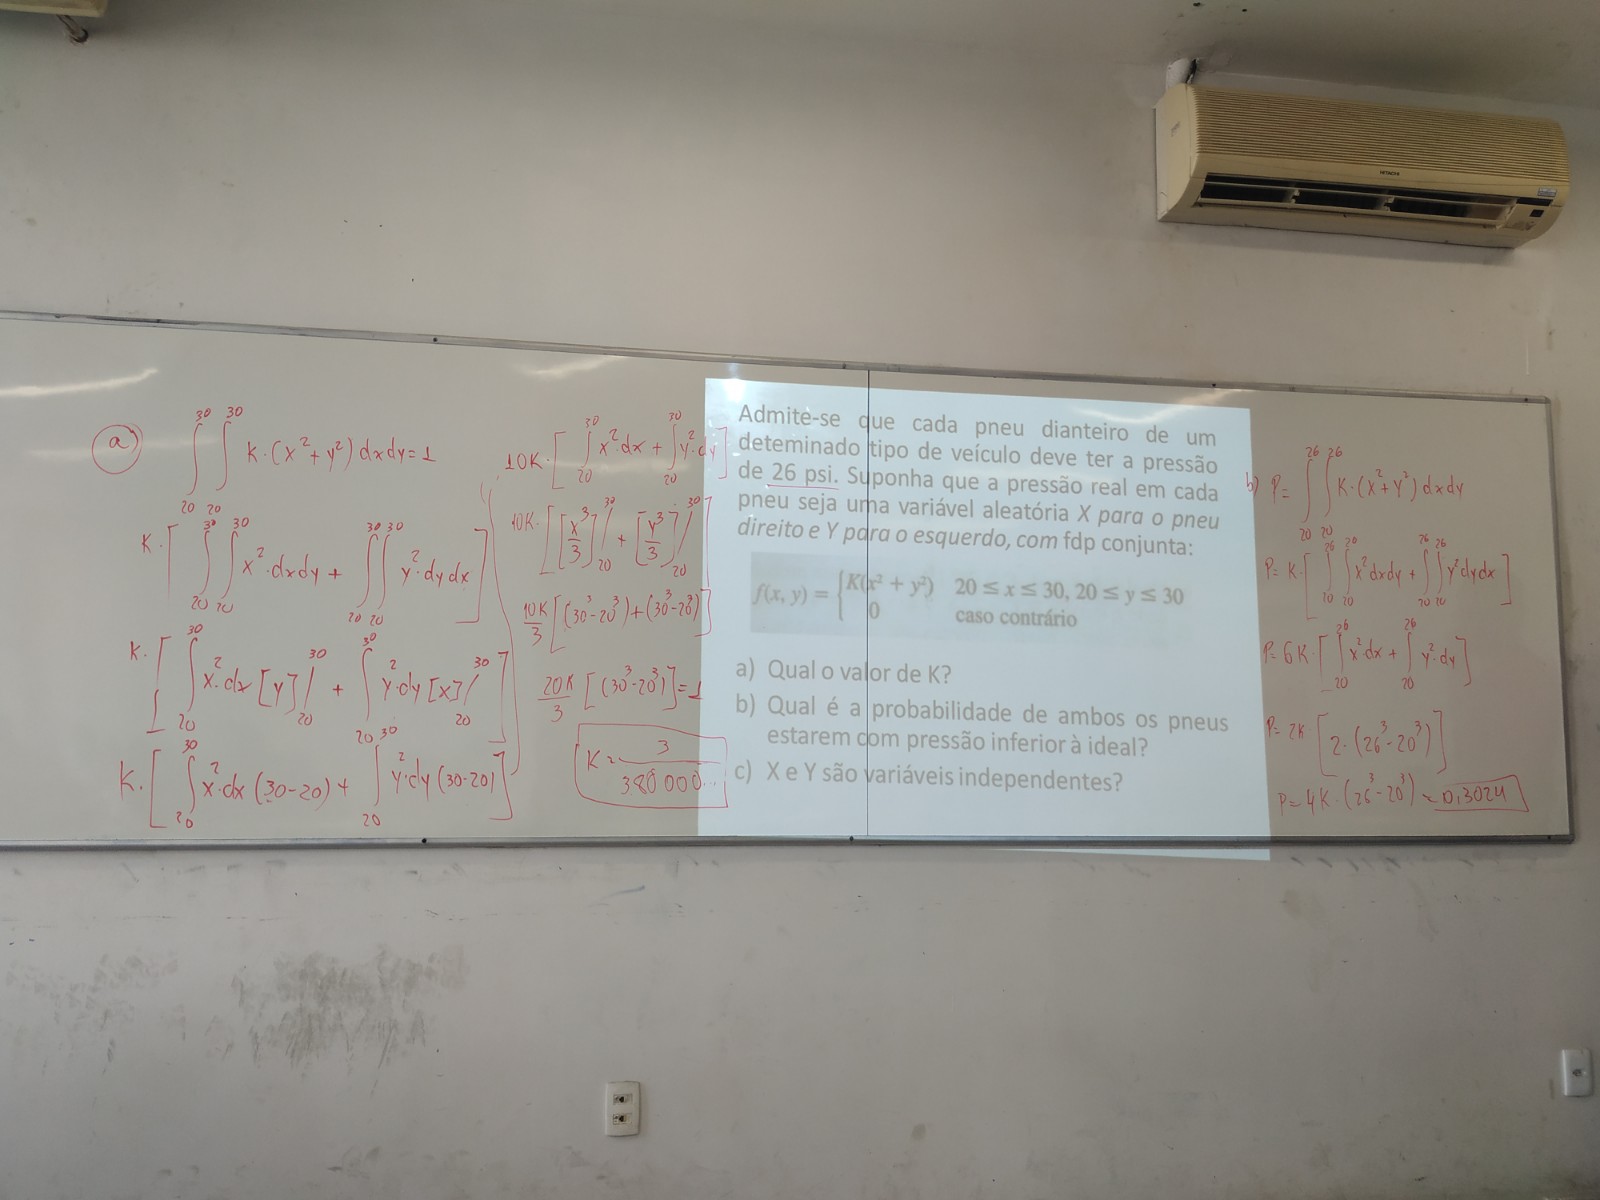 HITACHI
a)
∫₂₀³⁰ ∫₂₀³⁰ K·(x²+y²) dxdy = 1
K·[ ∫₂₀³⁰ ∫₂₀³⁰ x²·dxdy + ∫₂₀³⁰ ∫₂₀³⁰ y²·dydx ]
K·[ ∫₂₀³⁰ x²·dx [y]/₂₀³⁰ + ∫₂₀³⁰ y²·dy [x]/₂₀³⁰ ]
K·[ ∫₂₀³⁰ x²·dx (30-20) + ∫₂₀³⁰ y²·dy (30-20) ]
10K·[ ∫₂₀³⁰ x²·dx + ∫₂₀³⁰ y²·dy ]
10K·[ [x³/3]/₂₀³⁰ + [y³/3]/₂₀³⁰ ]
10K/3 [(30³-20³)+(30³-20³)]
20K/3 [(30³-20³)] = 1
K = 3/380000
Admite-se que cada pneu dianteiro de um
deteminado tipo de veículo deve ter a pressão
de 26 psi. Suponha que a pressão real em cada
pneu seja uma variável aleatória X para o pneu
direito e Y para o esquerdo, com fdp conjunta:
f(x, y) = { K(x² + y²) 20 ≤ x ≤ 30, 20 ≤ y ≤ 30
0 caso contrário
a) Qual o valor de K?
b) Qual é a probabilidade de ambos os pneus
estarem com pressão inferior à ideal?
c) X e Y são variáveis independentes?
b) P= ∫₂₀²⁶ ∫₂₀²⁶ K·(x²+y²) dxdy
P= K·[ ∫₂₀²⁶ ∫₂₀²⁶ x²dxdy + ∫₂₀²⁶ ∫₂₀²⁶ y²dydx ]
P= 6K·[ ∫₂₀²⁶ x²dx + ∫₂₀²⁶ y²·dy ]
P= 2K [2·(26³-20³)]
P= 4K·(26³-20³) ≈ 0,3024